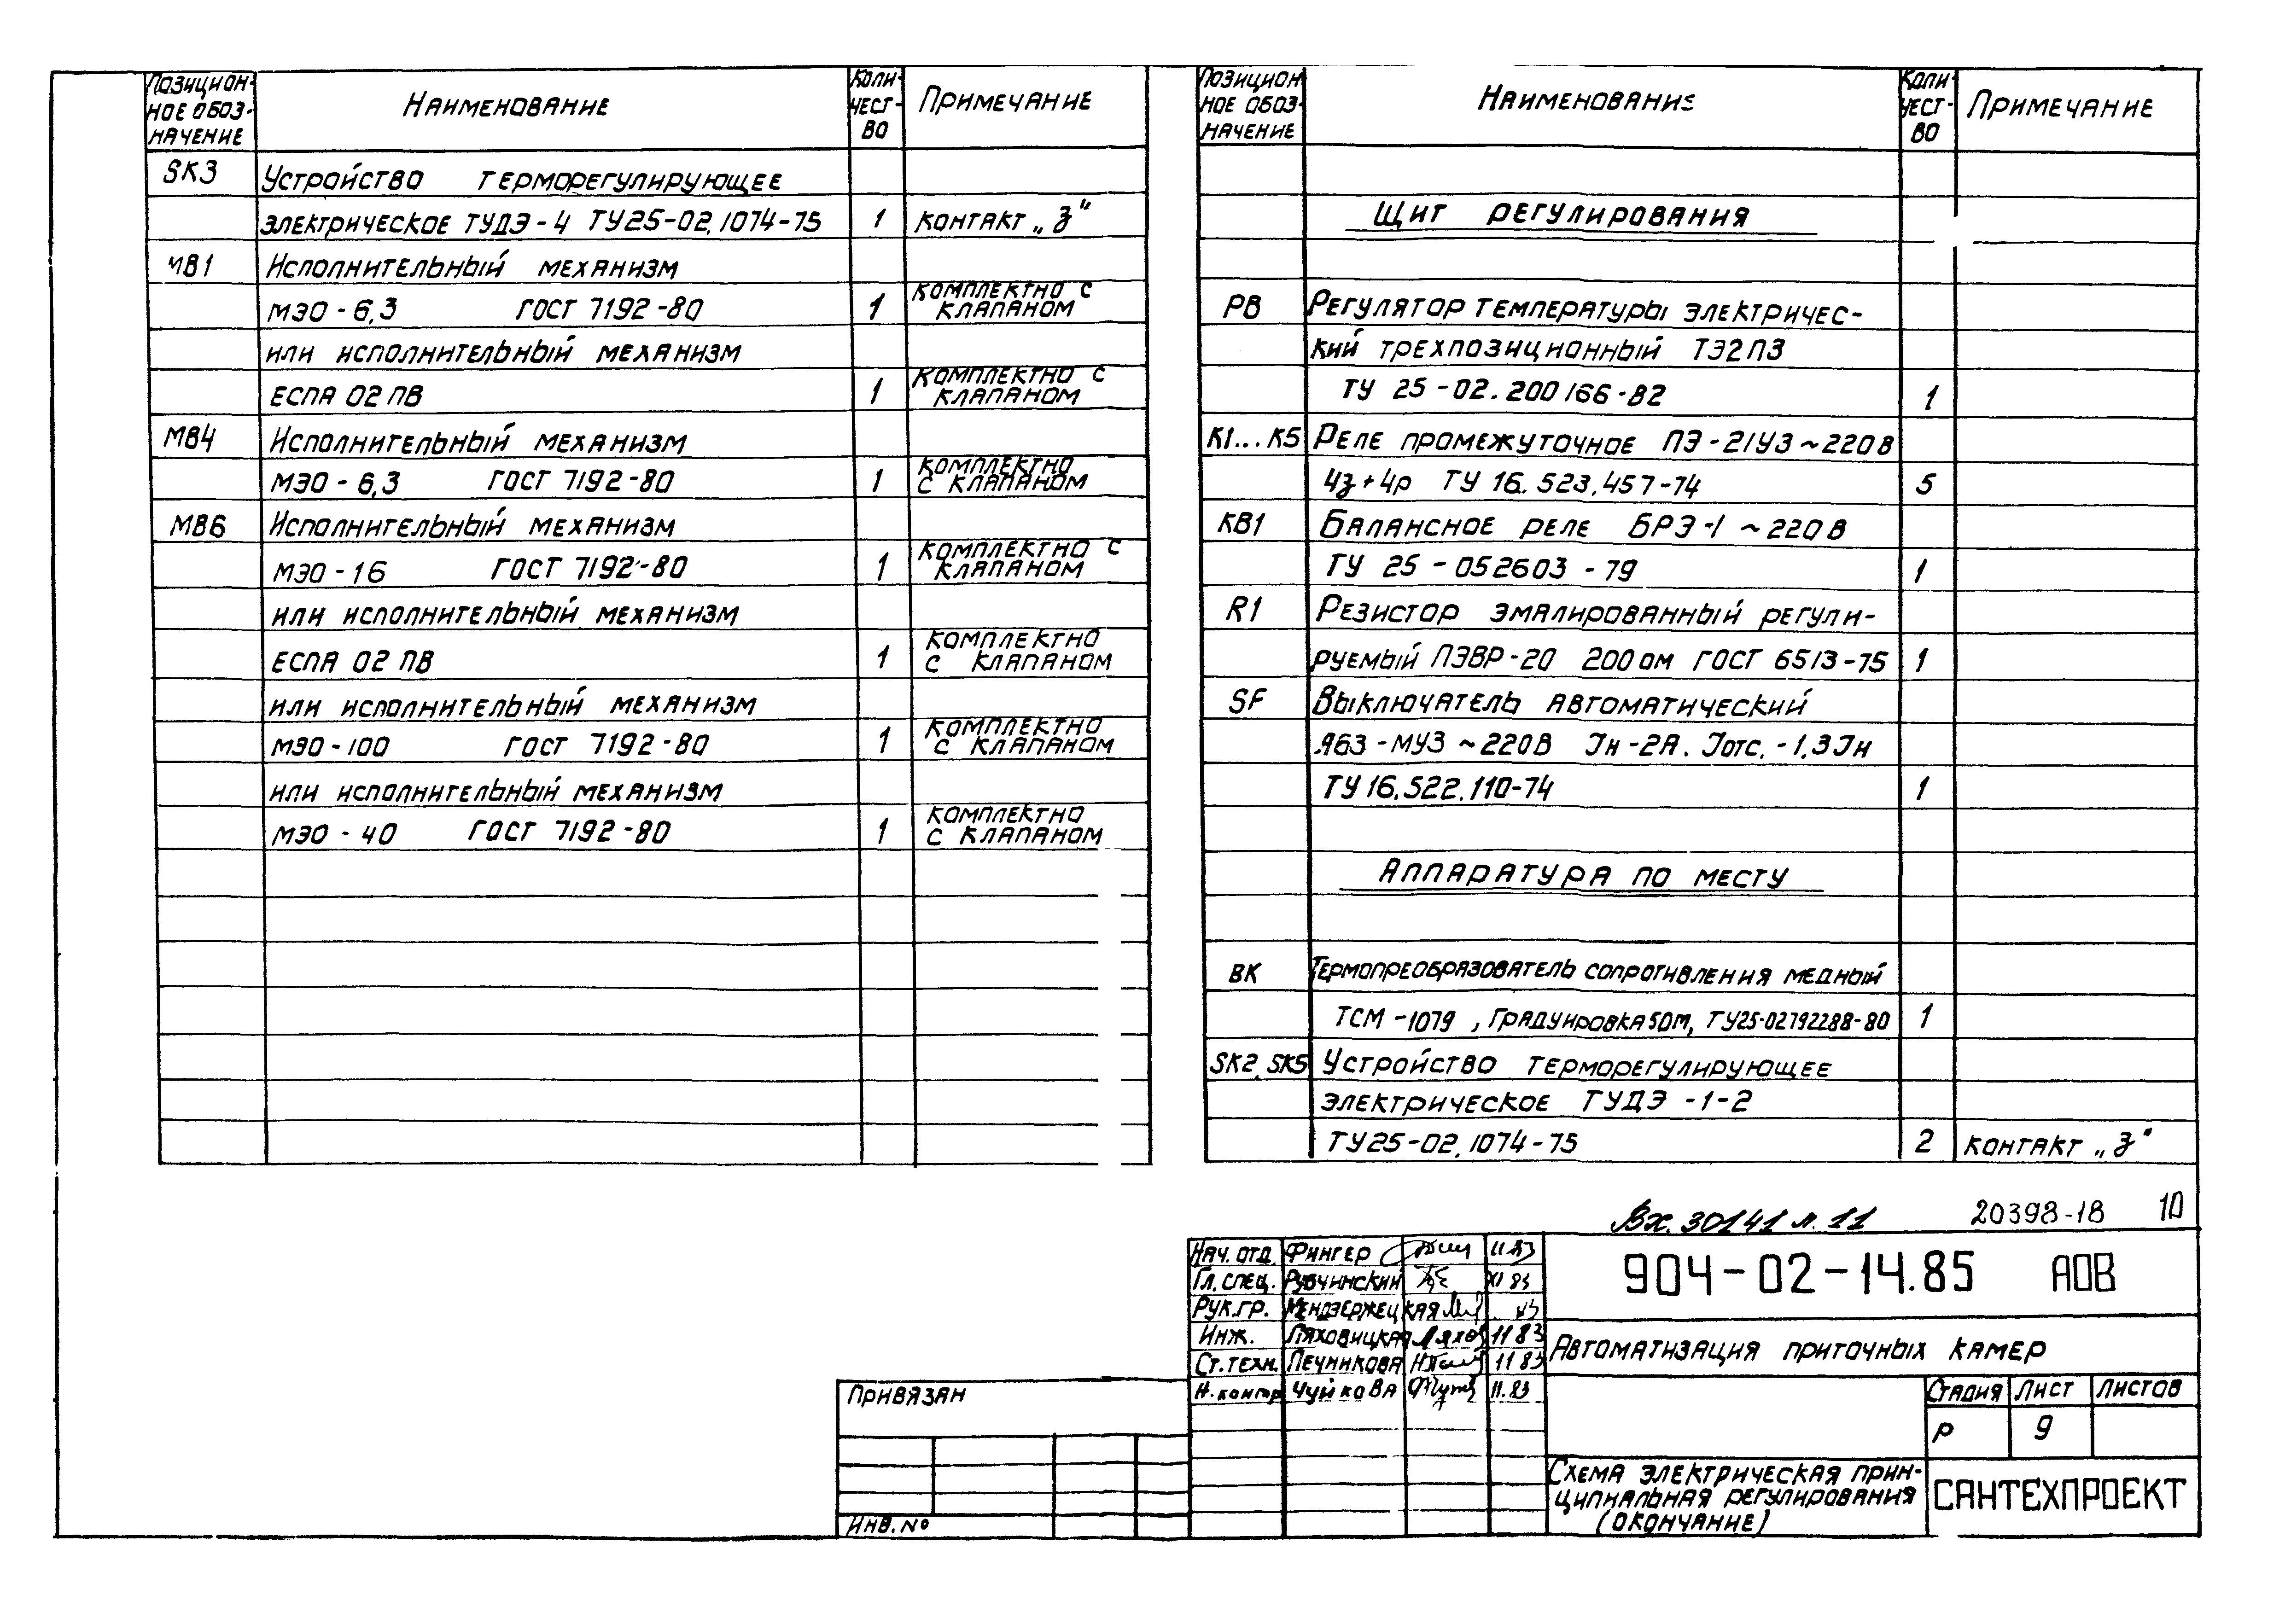 Позицион-
ное обоз-
начение
Наименование
Коли-
чест-
во
Примечание
SK3 Устройство терморегулирующее
электрическое ТУДЭ-4 ТУ25-02.1074-75 1 контакт „З"
МВ1 Исполнительный механизм
МЭО-6,3 ГОСТ 7192-80 1 комплектно с
клапаном
или исполнительный механизм
ЕСПА 02 ПВ 1 комплектно с
клапаном
МВ4 Исполнительный механизм
МЭО-6,3 ГОСТ 7192-80 1 комплектно
с клапаном
МВ6 Исполнительный механизм
МЭО-16 ГОСТ 7192-80 1 комплектно с
клапаном
или исполнительный механизм
ЕСПА 02 ПВ 1 комплектно
с клапаном
или исполнительный механизм
МЭО-100 ГОСТ 7192-80 1 комплектно
с клапаном
или исполнительный механизм
МЭО-40 ГОСТ 7192-80 1 комплектно
с клапаном
Позицион
ное обоз-
начение
Наименование
Коли-
чест-
во
Примечание
Щит регулирования
РВ Регулятор температуры электричес-
кий трехпозиционный ТЭ2П3
ТУ 25-02.200166-82 1
К1...К5 Реле промежуточное ПЭ-21У3 ~220В
4з+4р ТУ 16.523.457-74 5
КВ1 Балансное реле БРЭ-1 ~220В
ТУ 25-052603-79 1
R1 Резистор эмалированный регули-
руемый ПЭВР-20 200 ом ГОСТ 6513-75 1
SF Выключатель автоматический
А63-МУ3 ~220В Iн-2А. Iотс.-1,3Iн
ТУ 16.522.110-74 1
Аппаратура по месту
ВК Термопреобразователь сопротивления медный
ТСМ-1079, градуировка 50М, ТУ25-02792288-80 1
SK2, SK5 Устройство терморегулирующее
электрическое ТУДЭ-1-2
ТУ25-02.1074-75 2 контакт „З"
Вх. 30141 л. 11 20398-18 10
Нач. отд. Фингер 11 83
Гл. спец. Рубчинский XI 83
Рук.гр. Мендзержецкая 83
Инж. Ляховицкая Ляхов 11 83
Ст.техн. Печникова 11 83
Н.контр Чуйкова 11.83
904-02-14.85 АОВ
Автоматизация приточных камер
Стадия Лист Листов
Р 9
Схема электрическая прин-
ципиальная регулирования
(окончание)
САНТЕХПРОЕКТ
Привязан
Инв. №